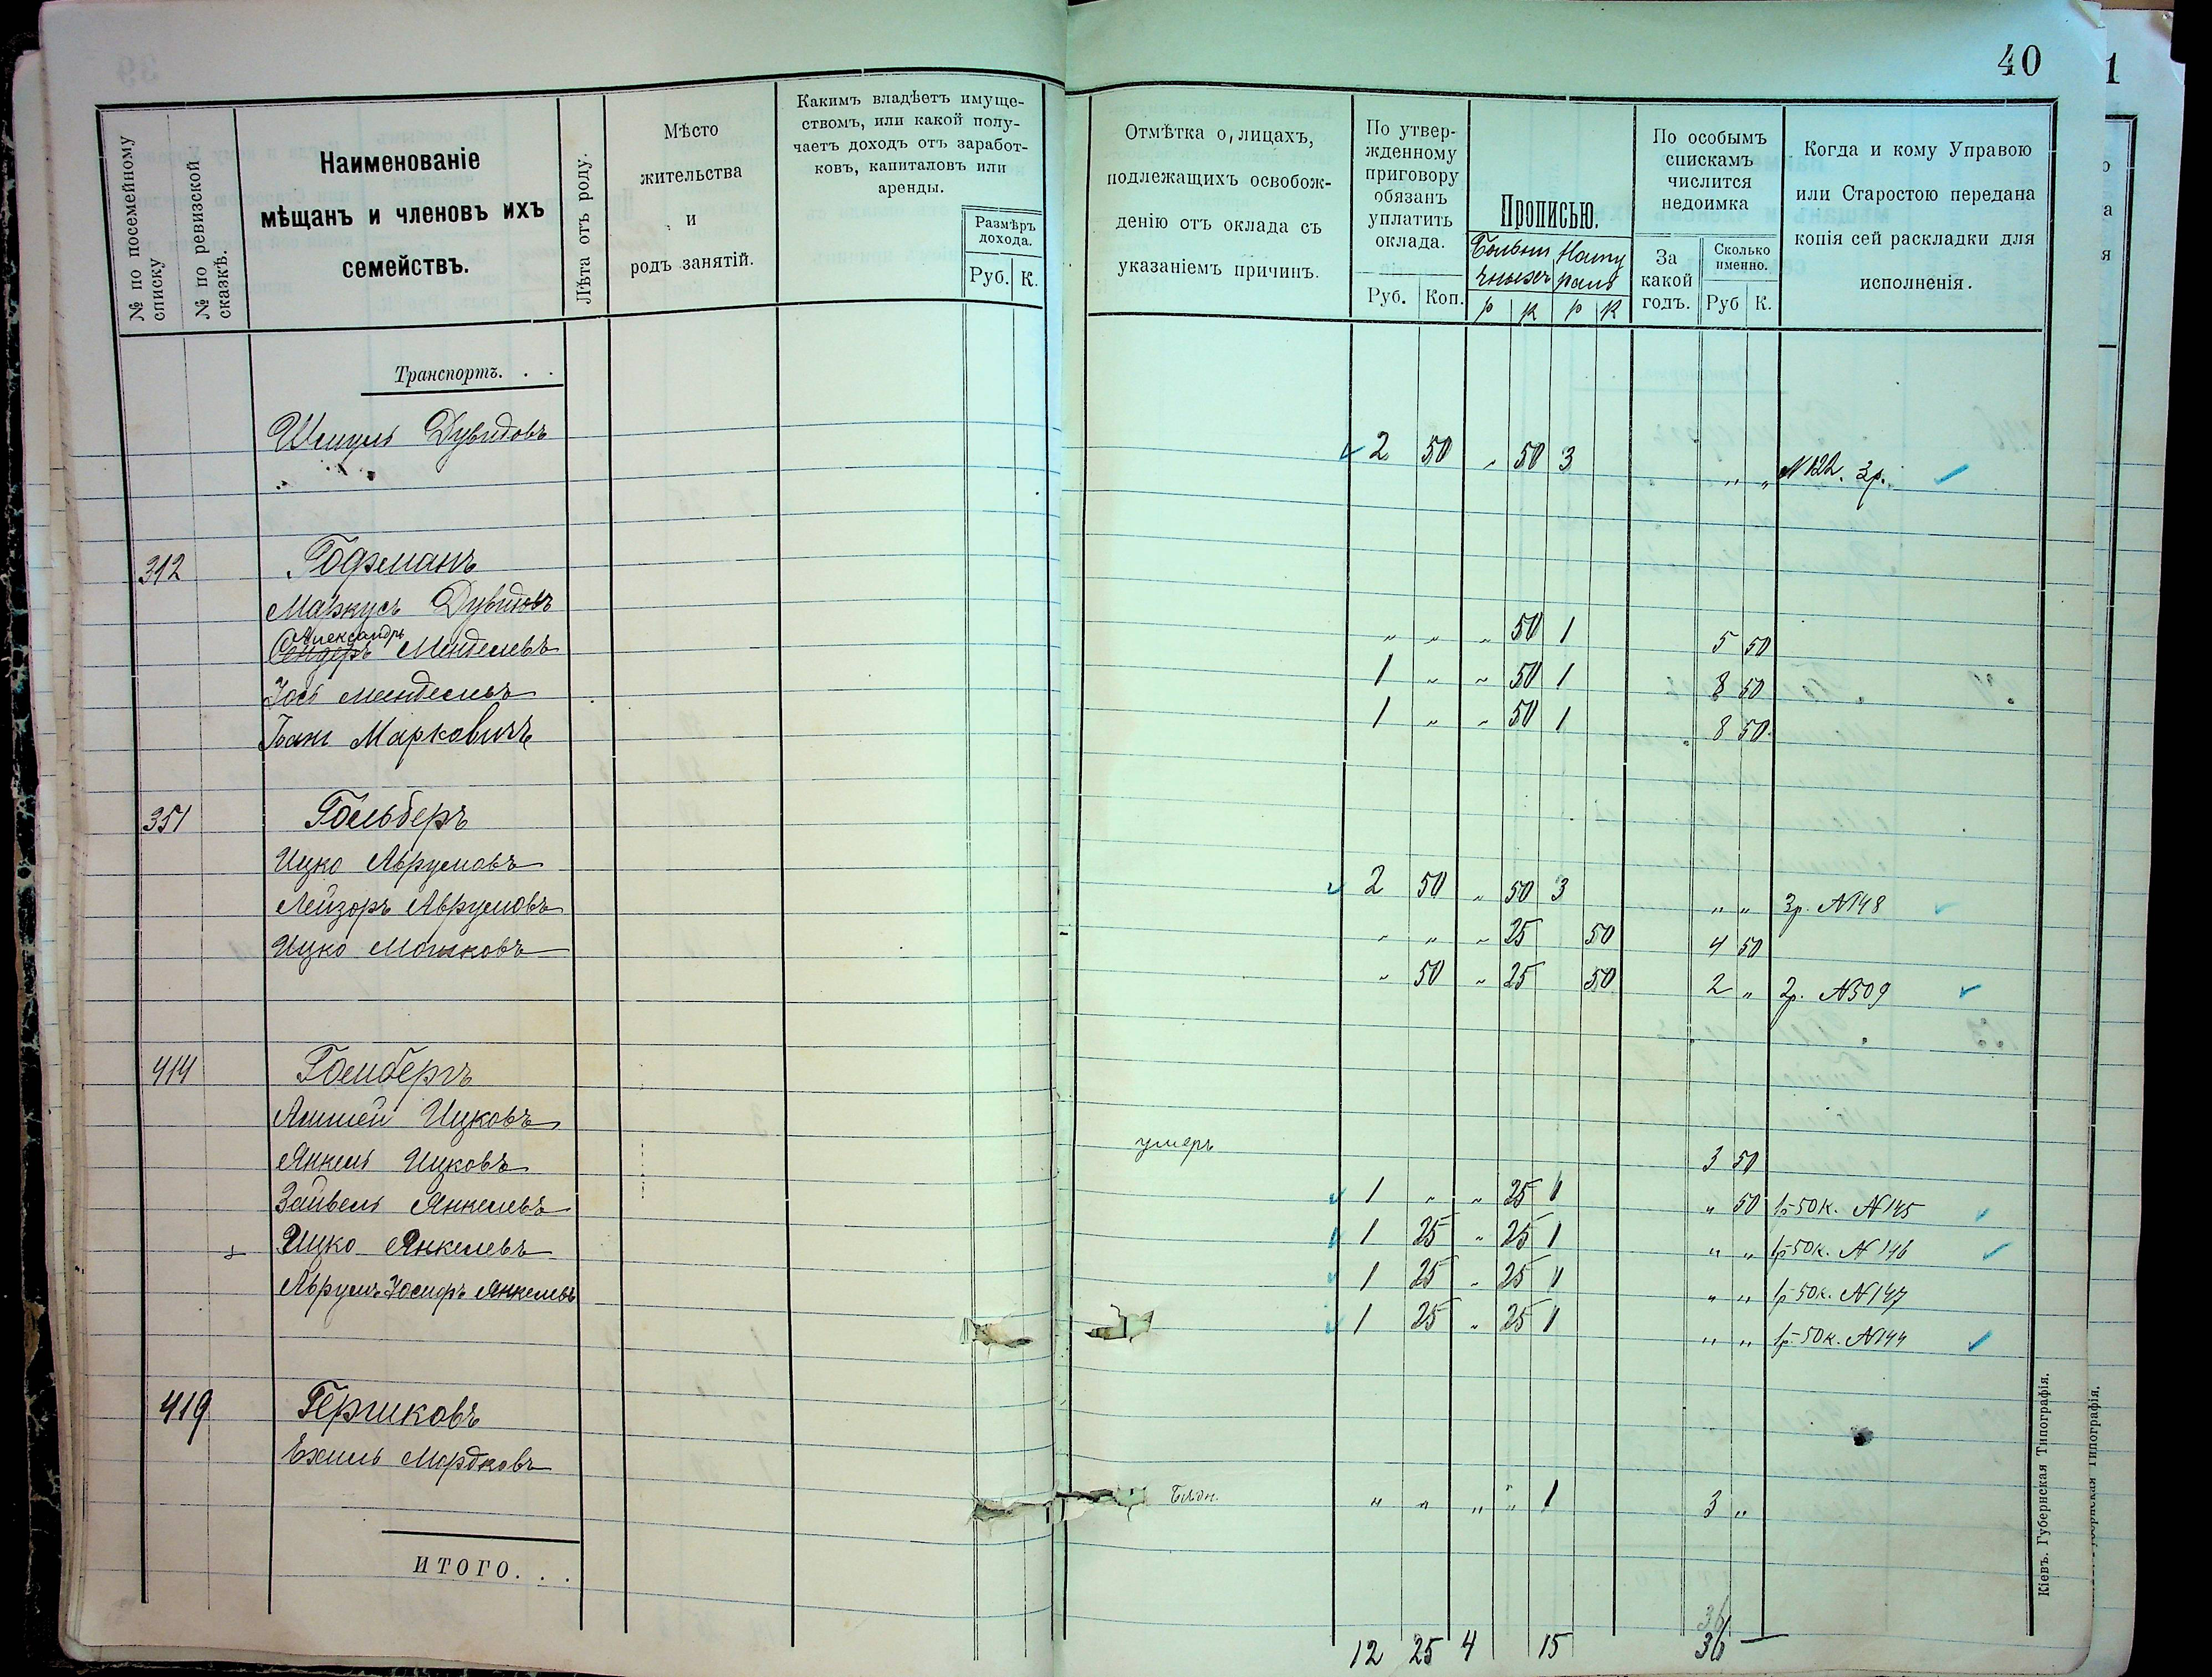 40
№ по посемейному списку
№ по ревизской сказкѣ.
Наименованіе
мѣщанъ и членовъ ихъ
семействъ.
Лѣта отъ роду.
Мѣсто
жительства
и
родъ занятій.
Какимъ владѣетъ имуще-
ствомъ, или какой полу-
чаетъ доходъ отъ заработ-
ковъ, капиталовъ или
аренды.
Размѣръ
дохода.
Руб. К.
Отмѣтка о лицахъ,
подлежащихъ освобож-
денію отъ оклада съ
указаніемъ причинъ.
По утвер-
жденному
приговору
обязанъ
уплатить
оклада.
Руб. Коп.
Прописью.
р к р к
По особымъ
спискамъ
числится
недоимка
За
какой
годъ.
Сколько
именно.
Руб К.
Когда и кому Управою
или Старостою передана
копія сей раскладки для
исполненія.
Транспортъ. . .
Шмуль Дувидовъ 2 50 „ 50 3 „ „ №122. 3р.
312 Гофманъ
Маркусъ Дувидовъ „ „ „ 50 1 5 50
Александръ
Сендеръ Менделевъ 1 „ „ 50 1 8 50
Іось Менделевъ 1 „ „ 50 1 8 50
Марковичъ
351 Гольберъ
Ицко Аврумовъ 2 50 „ 50 3 „ „ 3р. №148
Лейзоръ Аврумовъ „ „ „ 25 50 4 50
Ицко Мошковъ „ 50 „ 25 50 2 „ 2р. №509
414 Гольбергъ
Ицковъ умеръ 3 50
Янкель Ицковъ 1 „ „ 25 1 „ 50 1р 50к. №145
Зайвель Янкелевъ 1 25 „ 25 1 „ „ 1р 50к. №146
Ицко Янкелевъ 1 25 „ 25 1 „ „ 1р 50к. №147
Аврумъ Іосифъ Янкелевъ 1 25 „ 25 1 „ „ 1р 50к. №144
419 Гершковъ
Ехиль Мордковъ Бѣдн. „ „ „ „ 1 3 „
ИТОГО. . .
12 25 4 15 36 —
36
Кіевъ. Губернская Типографія.